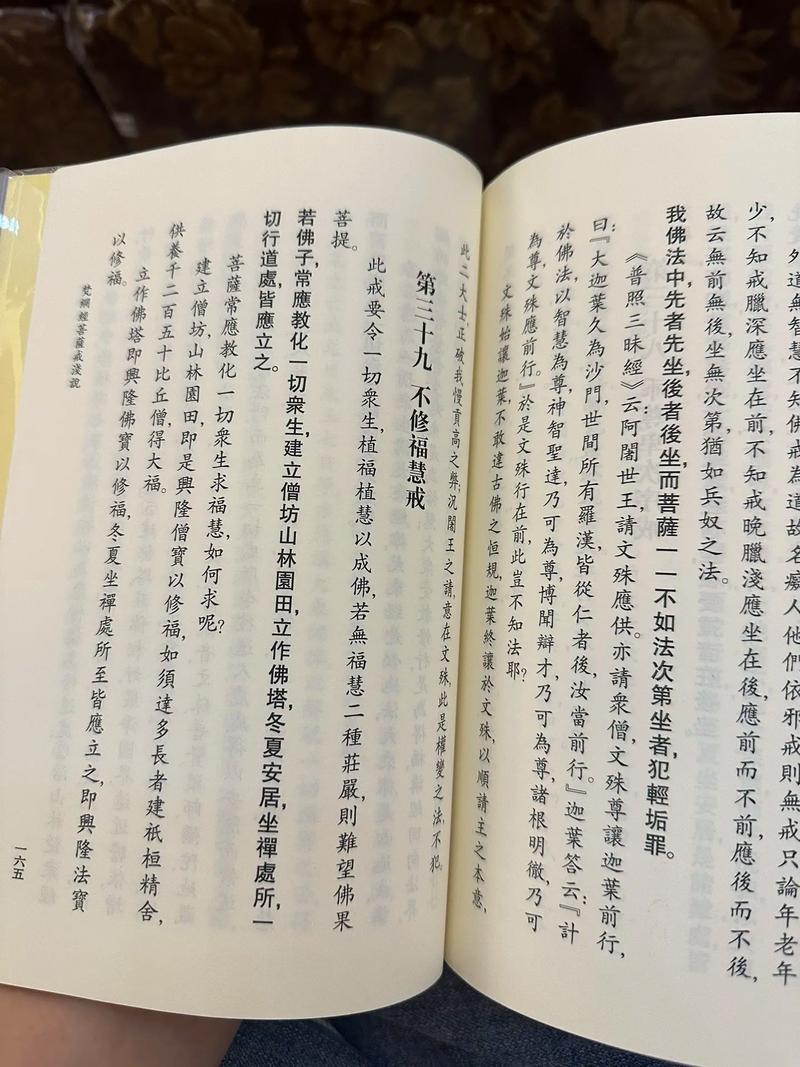 外道無智，不知佛戒為道故名癡人他們依邪戒則無戒只論年老年
少，不知戒臘深應坐在前，不知戒晚臘淺應坐在後，應前而不前，應後而不後，
故云無前無後坐無次第猶如兵奴之法。
我佛法中，先者先坐，後者後坐，而菩薩一一不如法次第坐者，犯輕垢罪。
《普照三昧經》云：阿闍世王，請文殊應供。亦請衆僧，文殊尊讓迦葉前行，
曰：『大迦葉久為沙門，世間所有羅漢皆從仁者後，汝當前行。』迦葉答云：『計
於佛法以智慧為尊，神智聖達，乃可為尊，博聞辯才，乃可為尊，諸根明徹，乃可
為尊，文殊應前行。』於是文殊行在前，此豈不知法耶？
文殊始讓迦葉，不敢違古佛之恒規，迦葉終讓於文殊，以順請主之本意，
此二大士，正破我慢貢高之弊；況闍王之請，意在文殊，此是權變之法，不犯。
第三十九 不修福慧戒
此戒要令一切衆生，植福植慧以成佛，若無福慧二種莊嚴，則難望佛果
菩提。
若佛子，常應教化一切衆生，建立僧坊山林園田，立作佛塔，冬夏安居，坐禪處所，一
切行道處，皆應立之。
菩薩常應教化一切衆生求福慧，如何求呢？
建立僧坊，山林園田，即是興隆僧寶以修福，如須達多長者建祇桓精舍，
供養千二百五十比丘僧，得大福。
立作佛塔即興隆佛寶以修福，冬夏坐禪處所至皆應立之，即興隆法寶
以修福。
梵網經菩薩戒淺說
一六五